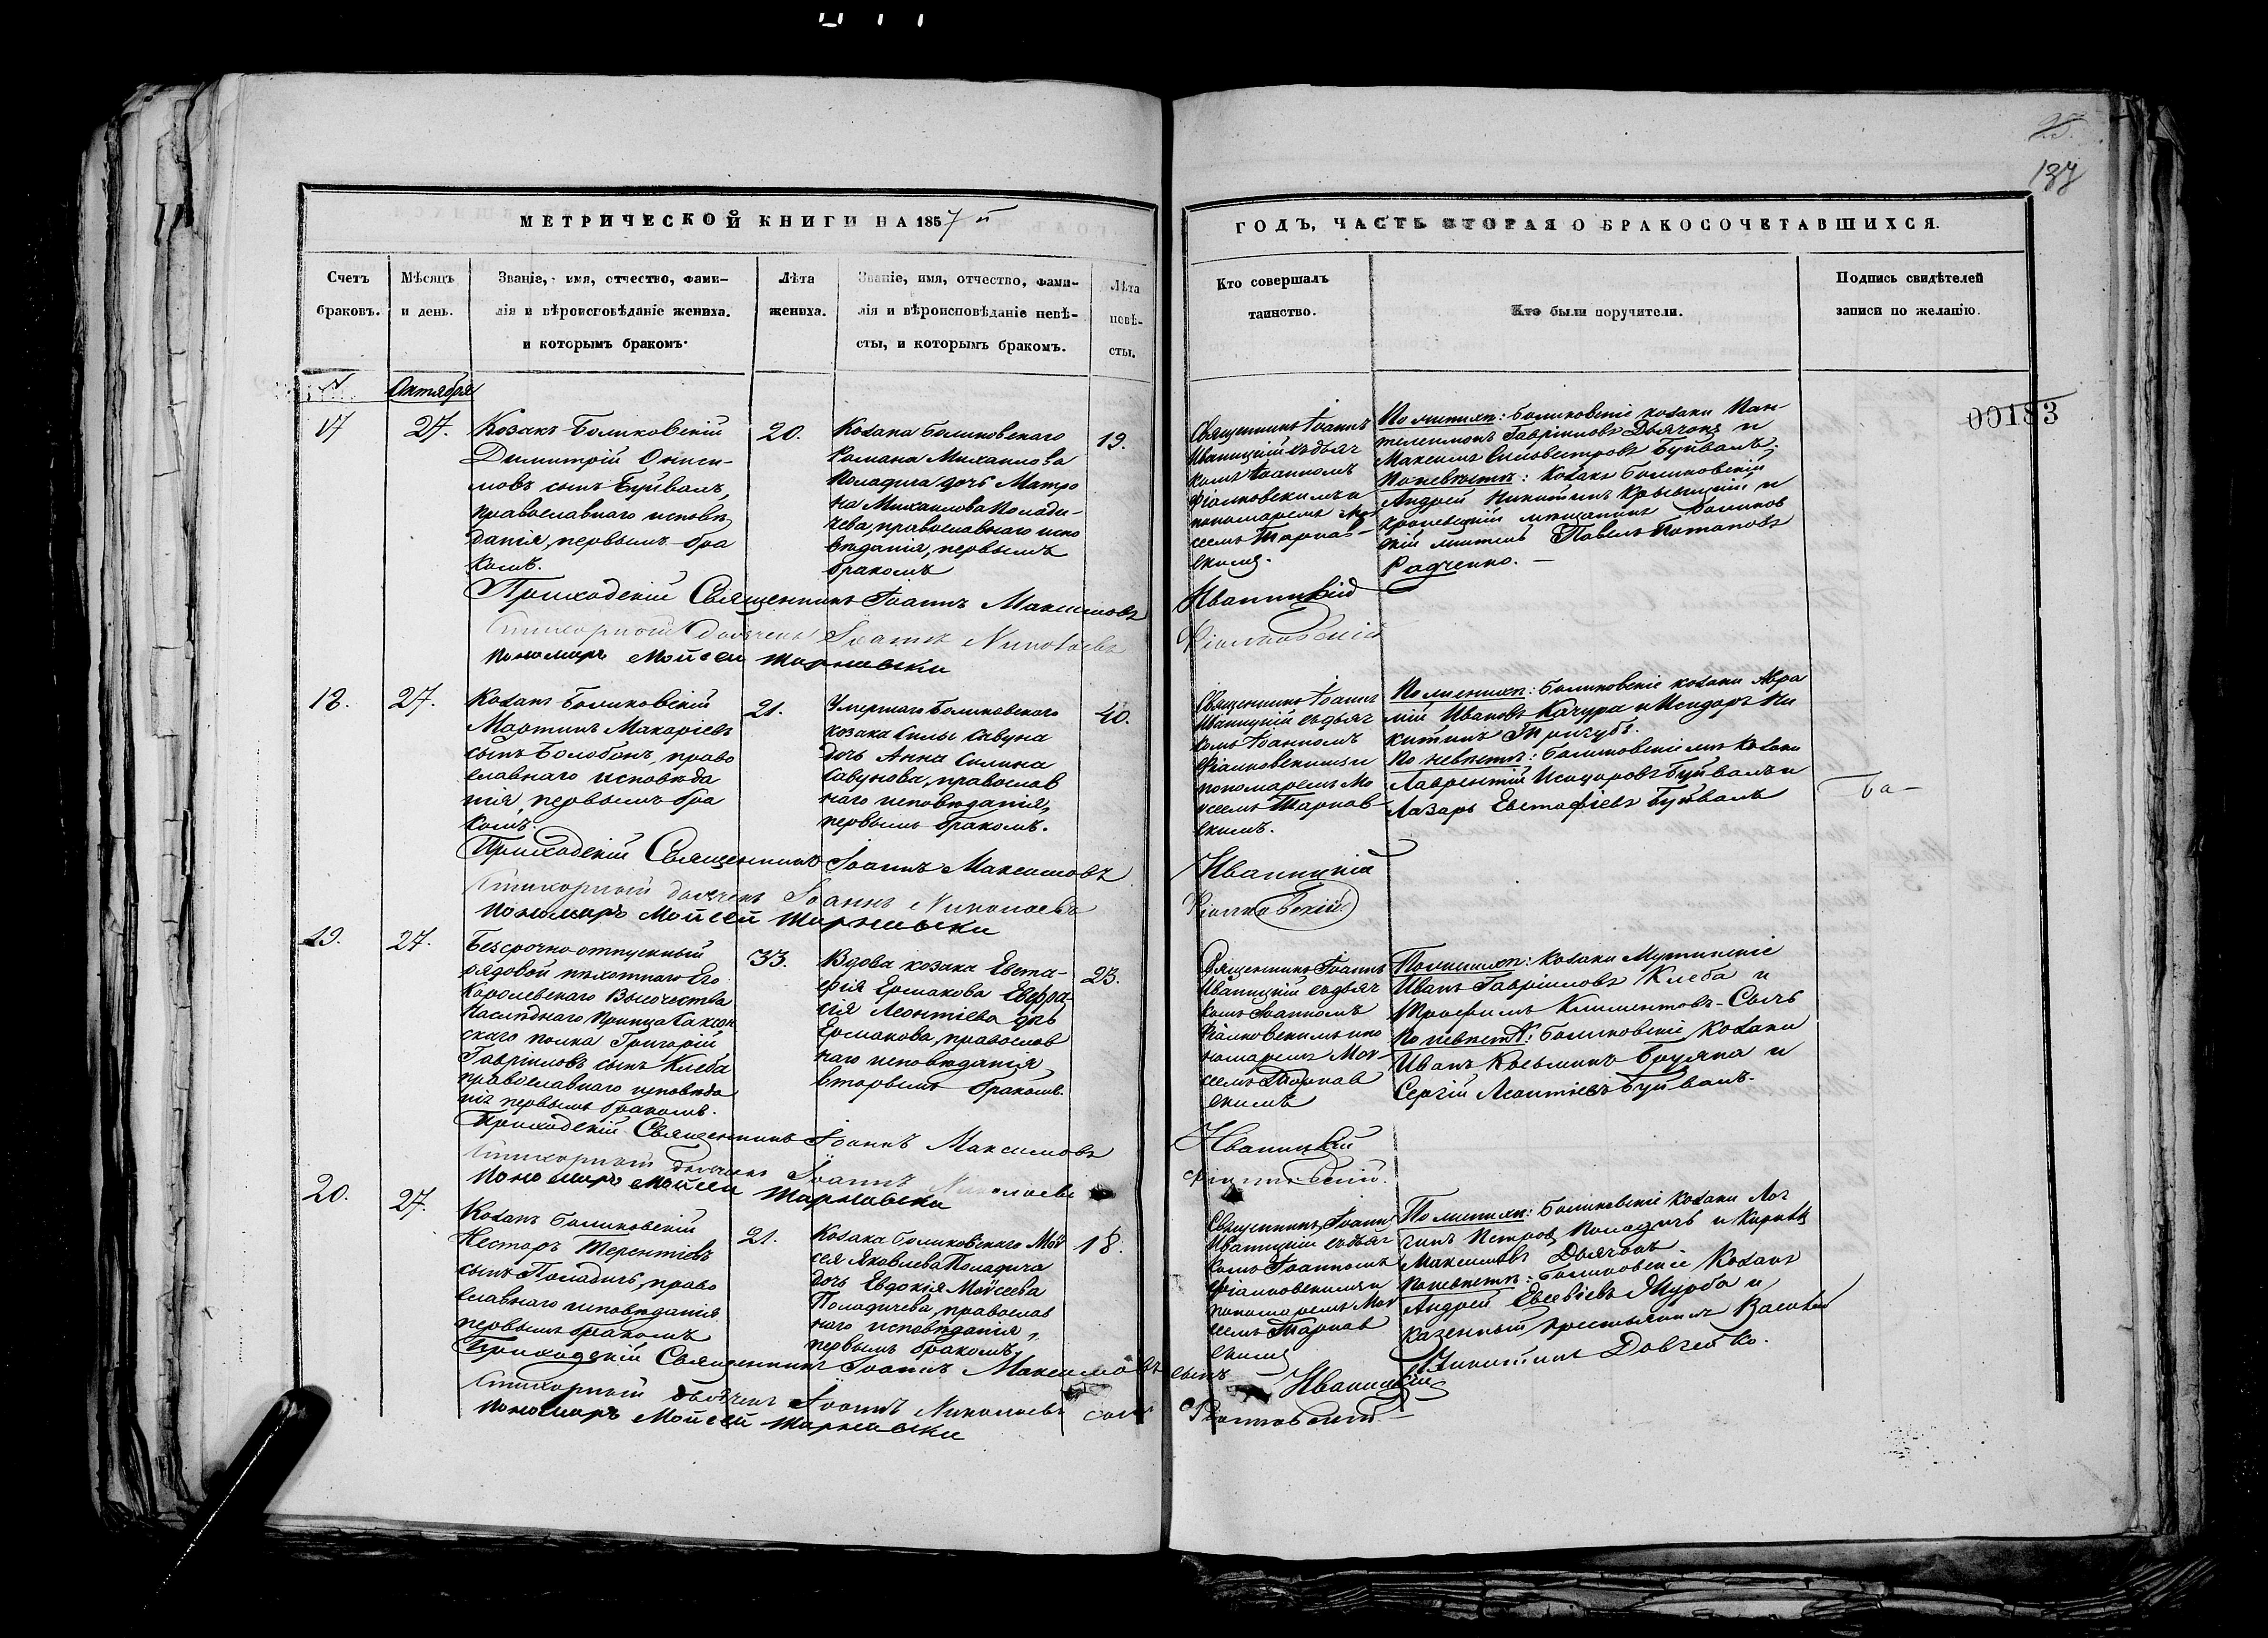 25.
137
МЕТРИЧЕСКОЙ КНИГИ НА 1857 й
ГОДЪ, ЧАСТЬ ВТОРАЯ О БРАКОСОЧЕТАВШИХСЯ.
Счетъ
браковъ.
Мѣсяцъ
и день.
Званіе, имя, отчество, фами-
лія и вѣроисповѣданіе жениха.
и которымъ бракомъ.
Лѣта
жениха.
Званіе, имя, отчество, фами-
лія и вѣроисповѣданіе невѣ-
сты, и которымъ бракомъ.
Лѣта
невѣ-
сты.
Кто совершалъ
таинство.
Кто были поручители.
Подпись свидѣтелей
записи по желанію.
00183
Октября
17
27.
Козакъ
ДимитрійОниси-
мовъ сынъ Буйвалъ,
православнаго исповѣ
данія, первымъ бра
комъ.
20.
Козака
Романа Михаилова
Поладича дочь Матро
на Михаилова Полади-
чева, православнаго испо
вѣданія, первымъ
бракомъ
19.
Священникъ Іоаннъ
Иваницкій съ дьяч
комъ Іоанномъ
Фіалковскимъ и
пономаремъ Мой
сеемъ Тарнав-
скимъ.
По женихѣ: козаки Пан-
телеимонъ Гавріиловъ Дьячокъ и
Максимъ Сильвестровъ Буйвалъ.
По невѣстѣ: козакъ
Андрей Никитинъ и
мѣщанинъ
житель Павелъ Потаповъ
Радченко.
Приходскій Священникъ Іоаннъ Максимовъ Иваницкій
Стихарный дьячекъ Іоаннъ Николаевъ Фіалковскій
Пономарь Мойсей Тарнавски
18.
27.
Козакъ
Мартинъ Макаріевъ
сынъ Болобонъ, право
славнаго исповѣда
нія, первымъ бра
комъ.
21.
Умершаго
козака Силы Савуна
дочь Анна Силина
Савунова, православ
наго исповѣданія,
первымъ бракомъ.
Священникъ Іоаннъ
Иваницкій съ дьяч
комъ Іоанномъ
Фіалковскимъ и
пономаремъ Мо
исеемъ Тарнав-
скимъ.
По женихѣ: козаки
Ивановъ Качура и Исидоръ Ни
китинъ Тригубъ.
По невѣстѣ: козаки
Лаврентій Исидоровъ Буйвалъ и
Лазарь Евстафіевъ Буйвалъ
Приходскій Священникъ Іоаннъ Максимовъ Иваницкій
Стихарный дьячекъ Іоаннъ Николаевъ Фіалковскій
Пономарь Мойсей Тарнавски
19.
27.
Безсрочно отпускный
рядовой пѣхотнаго Его
Королевскаго Высочества
Наслѣднаго Принца Саксон
скаго полка Григорій
Гавріиловъ сынъ Клеба
православнаго исповѣда
нія первымъ бракомъ.
33.
Вдова козака Евста-
фія Ермакова Евфра-
сія Леонтіева дочь
Ермакова, православ
наго исповѣданія
вторымъ бракомъ.
23.
Священникъ Іоаннъ
Иваницкій съ дьяч
комъ Іоанномъ
Фіалковскимъ и по
номаремъ Мой-
сеемъ Тарнав
скимъ
По женихѣ: козаки Мутинскіе
Иванъ Гавріиловъ Клеба и
Трофимъ Климентовъ Сычъ
По невѣстѣ: козаки
Иванъ Косьминъ и
Сергій Леонтіевъ Буйвалъ.
Приходскій Священникъ Іоаннъ Максимовъ Иваницкій
Стихарный дьячекъ Іоаннъ Николаевъ Фіалковскій.
Пономарь Мойсей Тарнавски
20.
27.
Козакъ
Несторъ Терентіевъ
сынъ Поладичъ, право
славнаго исповѣданія
первымъ бракомъ
21.
Козака Мой
сея Яковлева Поладича
дочь Евдокія Мойсеева
Поладичева, православ
наго исповѣданія,
первымъ бракомъ.
18.
Священникъ Іоаннъ
Иваницкій съ дьяч
комъ Іоанномъ
Фіалковскимъ и
пономаремъ Мой
сеемъ Тарнав
скимъ
По женихѣ: козаки Лог
гинъ Петровъ Поладичъ и
Максимовъ Дьячокъ
По невѣстѣ: Козакъ
Андрей Евсевіевъ и
казенный крестьянинъ
Никитинъ Довгейко.
Приходскій Священникъ Іоаннъ Максимовъ сынъ Иваницкій
Стихарный дьячекъ Іоаннъ Николаевъ сынъ Фіалковскій
Пономарь Мойсей Тарнавски